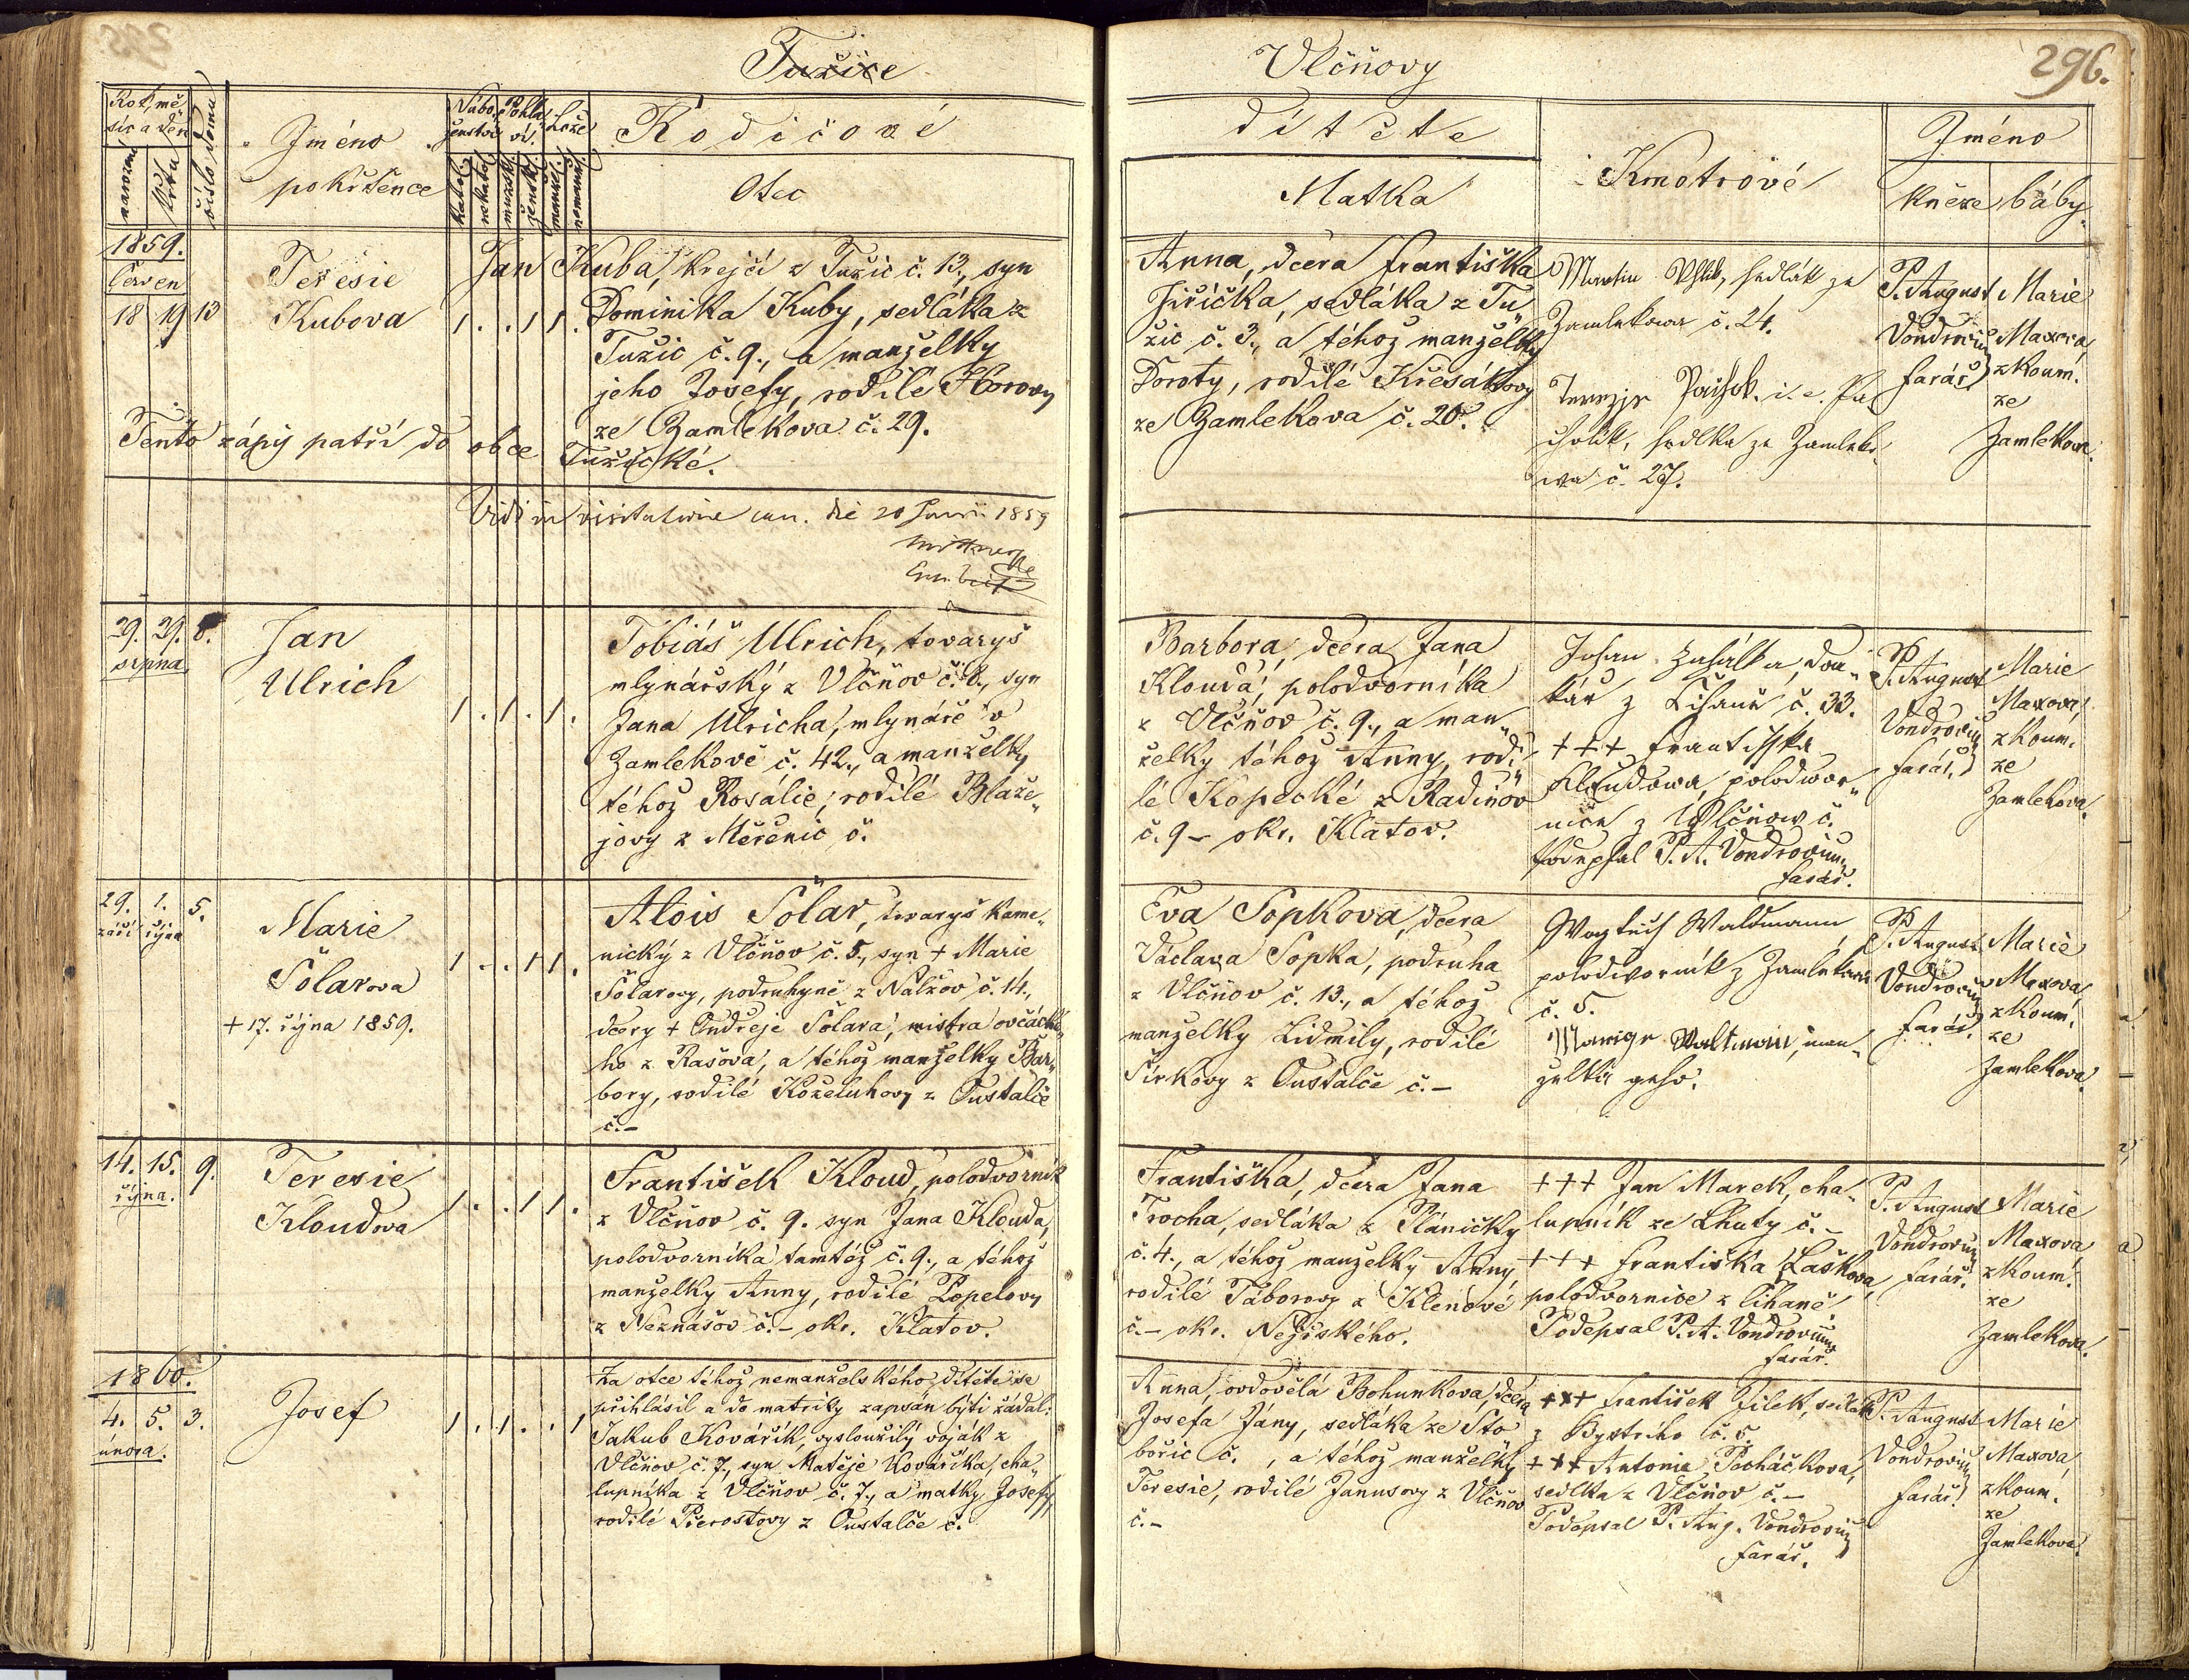 Tužice
Vlčňovy
296.
Rok, mě-
síc a den
narození
křtu
číslo domu
Jméno
pokřtěnce
Nábo-
ženství
Pohla-
ví
Lože
katol.
nekatol.
mužsk.
žensk.
manžel.
nemanž.
Rodičové
Otec
dítěte
Matka
Kmotrové
Jméno
kněze
báby
1859.
červen
18 19 13
Teresie
Kubova
1 . . 1 1 .
Jan Kuba, krejčí z Tužic č. 13., syn
Dominika Kuby, sedláka z
Tužic č. 9., a manželky
jeho Josefy, rodilé Horovy
ze Zamlekova č. 29.
Tento zápis patří do obce Tužické.
Anna, dcera Františka
Jiříčka, sedláka z Tu-
žic č. 3., a téhož manželky
Doroty, rodilé Křesákovy
ze Zamlekova č. 20.
Martin, sedlák ze
Zamlekowa č. 24.
Terezye i. e.
sedlka ze Zamleko-
wa č. 27.
P. August
Vondrovic
farář
Marie
Maxova
zkoum.
ze
Zamlekova.
Vidi in visitatione can. die 20 Junii 1859
29. 29. 8.
srpna.
Jan
Ulrich
1 . 1 . 1 .
Tobiáš Ulrich, tovaryš
mlynářský z Vlčňov č. 8., syn
Jana Ulricha, mlynáře v
Zamlekově č. 42., a manželky
téhož Rosálie, rodilé Blaže-
jovy z Měčenic č.
Barbora, dcera Jana
Klouda, polodvorníka
z Vlčňov č. 9., a man-
želky téhož Anny, rodi-
lé Kopecké z Radinov
č. 9 - okr. Klatov.
Johan, dou-
kář z Číhaně č. 33.
+++ Frantisska
Kloudowa, polodwor-
nice z Wlčňow č.
Podepsal P. A. Vondrovic,
farář.
P. August
Vondrovic
farář.
Marie
Maxova
zkoum.
ze
Zamlekova.
29. 1. 5.
září října
Marie
Šolarova
+ 17. října 1859.
1 . . 1 1 .
Alois Šolar, tovaryš kame-
nický z Vlčňov č. 5., syn + Marie
Šolarovy, podruhyně z Nalžov č. 14.,
dcery + Ondřeje Šolara, mistra ovčácké-
ho z Rašova, a téhož manželky Bar-
bory, rodilé Koželuhovy z Oustalče
č. -
Eva Sopkova, dcera
Václava Sopka, podruha
z Vlčňov č. 13., a téhož
manželky Lidmily, rodilé
Šírkovy z Oustalče č. -
Wogtěch Waldmann
polodwornik z Zamlekowa
č. 5.
Marige Waltmann, man-
želka geho.
P. August
Vondrovic
farář.
Marie
Maxova
zkoum.
ze
Zamlekova.
14. 15. 9.
října.
Teresie
Kloudova
1 . . 1 1 .
František Kloud, polodvorník
z Vlčňov č. 9. syn Jana Klouda,
polodvorníka tamtéž č. 9., a téhož
manželky Anny, rodilé Popelovy
z Neznášov č. - okr. Klatov.
Františka, dcera Jana
Trocha, sedláka z Pláničky
č. 4., a téhož manželky Anny,
rodilé Táborovy z Klenové
č. - okr. Nejrského.
+++ Jan Marek, cha-
lupník ze Lhuty č. -
+++ Františka Laškova,
polodvornice z Číhaně
Podepsal P. A. Vondrovic
farář.
P. August
Vondrovic
farář.
Marie
Maxová
zkoum.
ze
Zamlekova.
1860.
4. 5. 3.
února.
Josef
1 . 1 . . 1
Za otce téhož nemanželského dítěte se
přihlásil a do matriky zapsán býti žádal:
Jakub Kovářík, vysloužilý voják z
Vlčňov č. 7., syn Matěje Kováříka, cha-
lupníka z Vlčňov č. 7., a matky Josefy,
rodilé Přerostovy z Oustalče č.
Anna, ovdovělá Bohunkova, dcera
Josefa Jány, sedláka ze Sto-
bořic č. , a téhož manželky
Teresie, rodilé Janusovy z Vlčňov
č. -
+++ František Jílek, sedlák
z Bystrího č. 5.
+++ Antonie Pocháčkova,
sedlka z Vlčňov č. -
Podepsal P. Aug. Vondrovic
farář.
P. August
Vondrovic
farář.
Marie
Maxová
zkoum.
ze
Zamlekova.